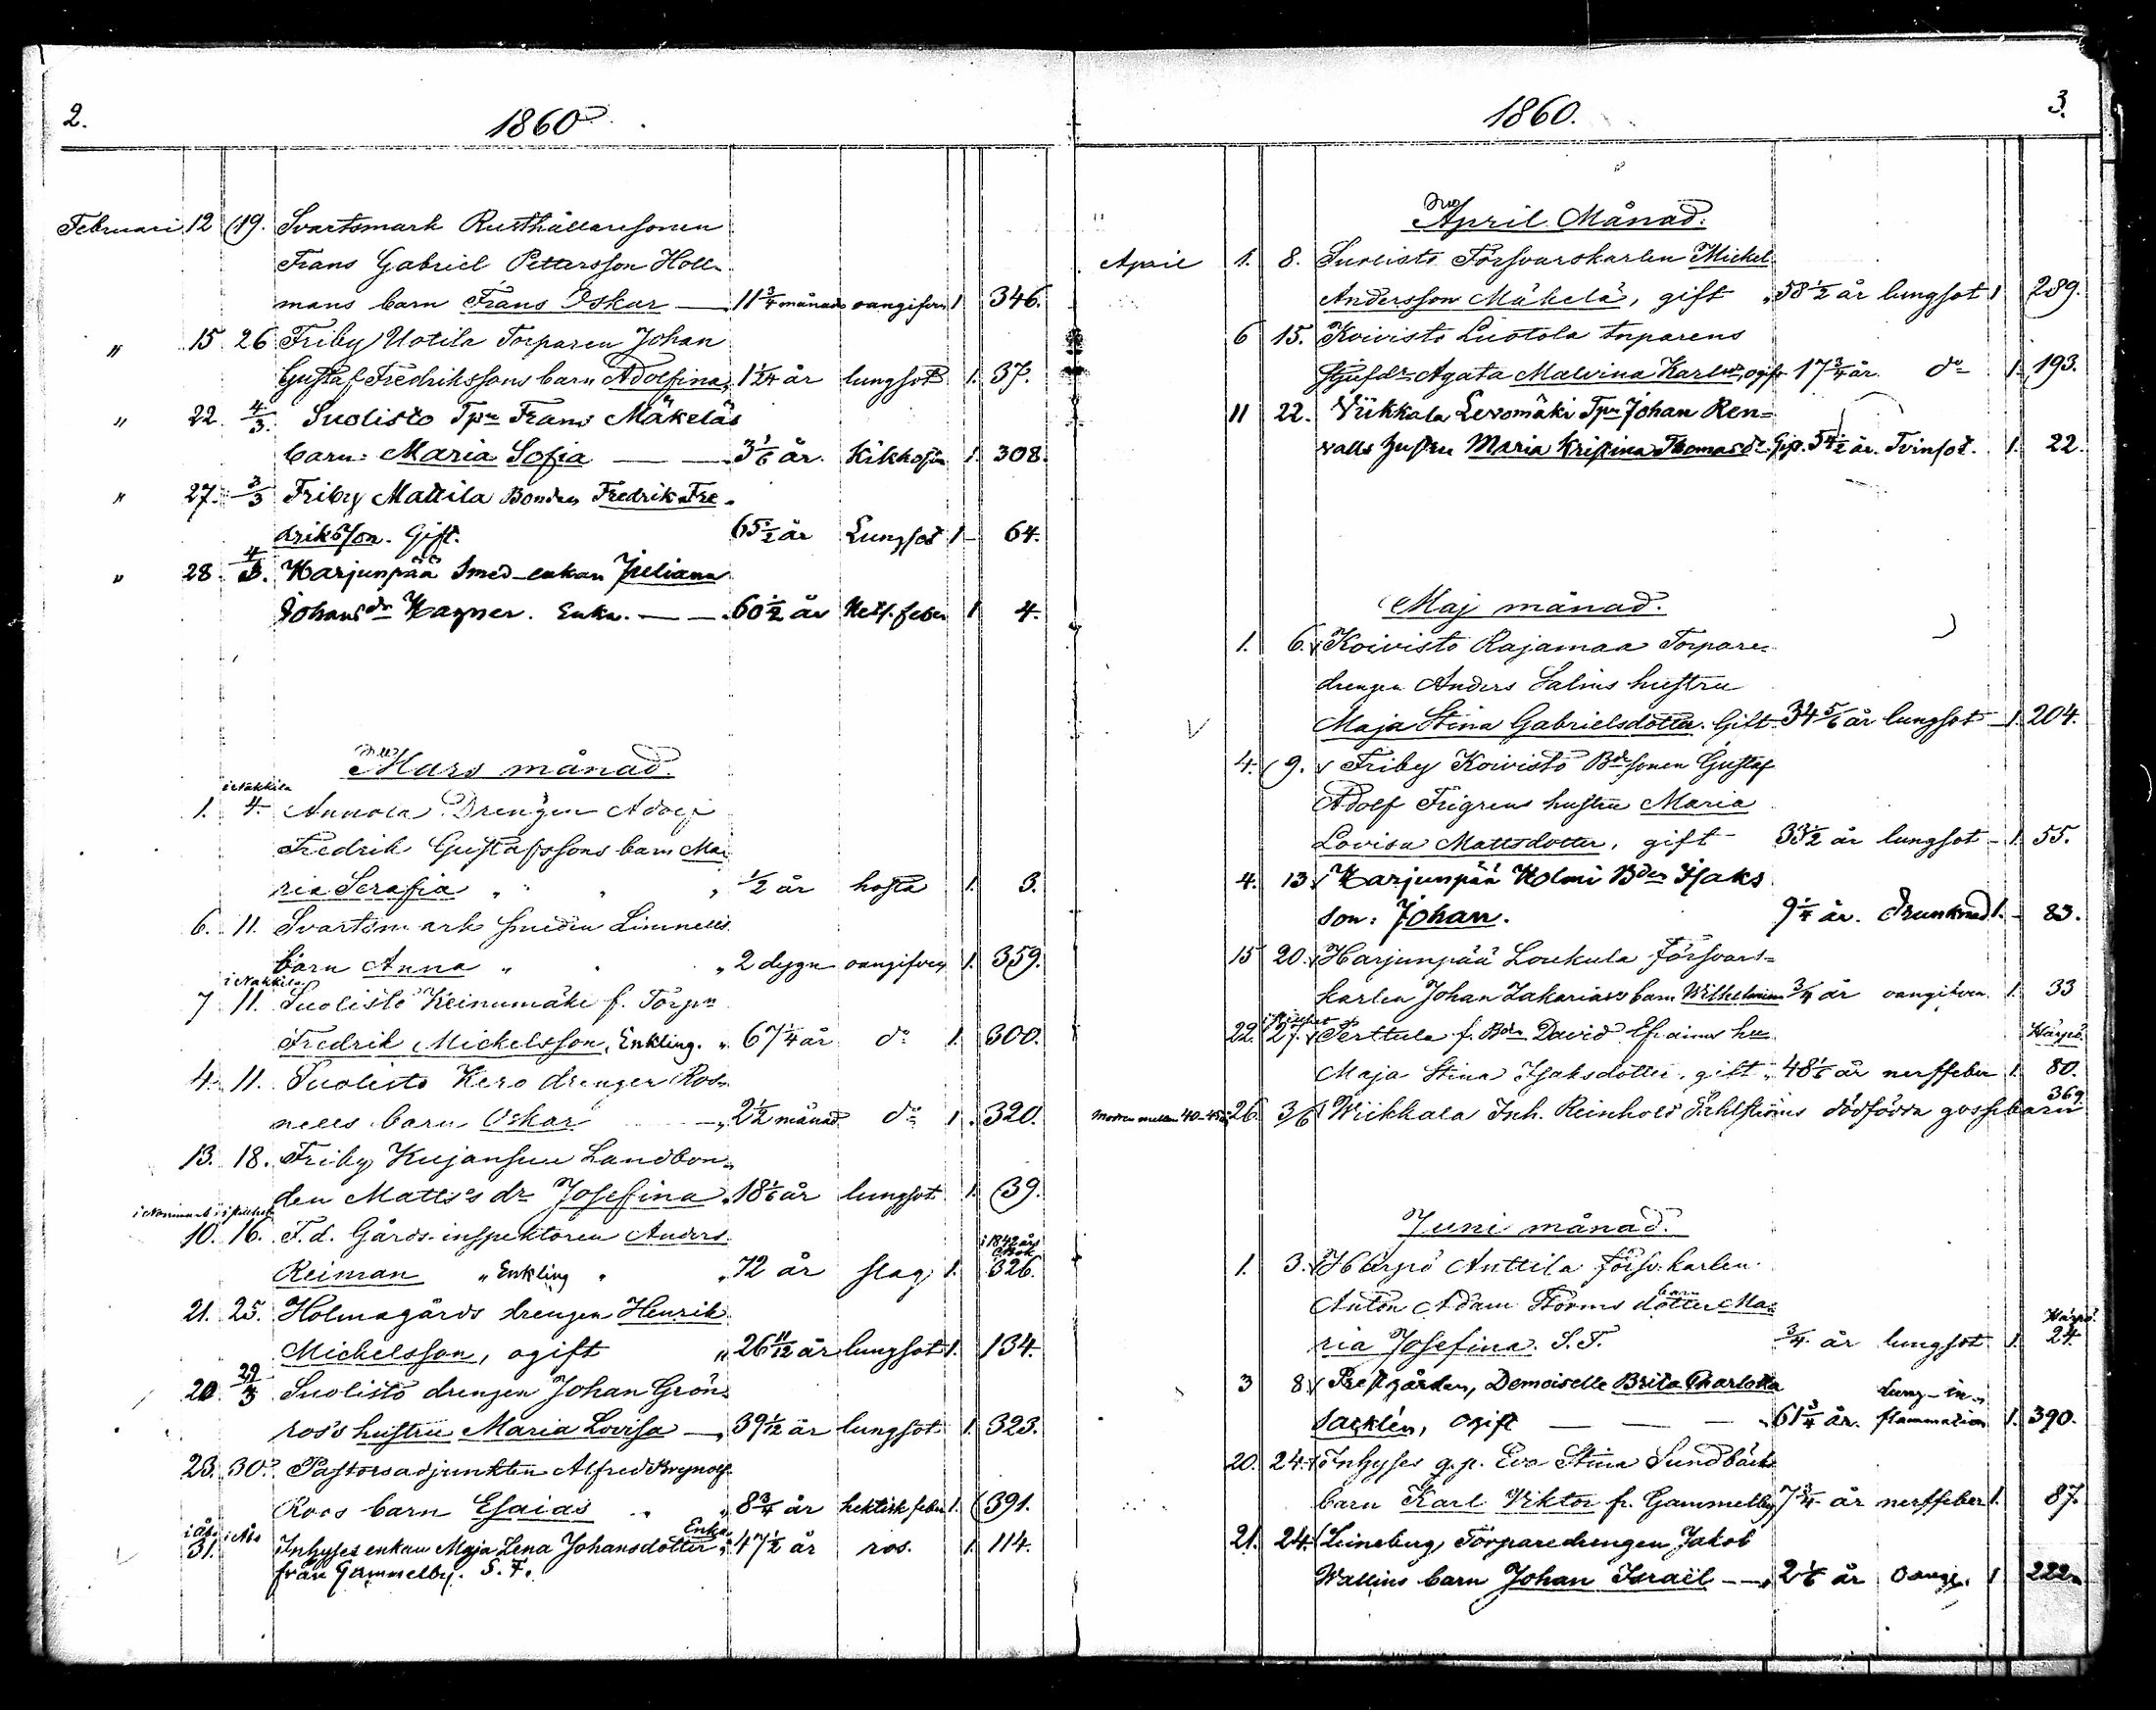 2.
1860
Februari 12 19. Svartsmark Rusthållaresonen
Frans Gabriel Pettersson Holl-
mans barn Frans Oskar — 11 3/4 månad oangifven 1 346.
" 15 26 Friby Uotila Torparen Johan
Gustaf Fredrikssons barn Adolfina, 1 1/24 år lungsot 1. 37.
" 22. 4/3. Suolisto Tpn Frans Mäkeläs
barn: Maria Sofia — 3 1/6 år. Kikhosta 1. 308.
" 27. 3/3 Friby Mattila Bonden Fredrik Fre-
driksson. Gift. 65 1/2 år Lungsot 1 64.
" 28. 4/3. Harjunpää Smed-enkan Juliana
Johansdr Wagner. Enka. — 60 1/2 år Nerf. feber 1 4.
Mars månad.
i Nakkila
1. 4. Annola Drengen Adolf
Fredrik Gustafssons barn Ma-
ria Serafia " " " 1/2 år hosta 1. 3.
6. 11. Svartsmark smeden Linnells
barn Anna " " 2 dygn oangifven 1. 359.
i Nakkila
7 11. Suolisto Keinumäki f. Torpn
Fredrik Mickelsson, Enkling. " 67 1/4 år do 1. 300.
4. 11. Suolisto Kero drengen Ros-
nells barn Oskar — " 2 1/2 månad do 1. 320.
13. 18. Friby Kujansuu Landbon-
den Matts's dr Josefina " 18 1/6 år lungsot 1. 39.
10. 16. F.d. Gårds-inspektoren Anders i 1842 års C.Bok
Reiman " Enkling " " 72 år slag 1. 326.
21. 25. Holmagårds drengen Henrik
Michelsson, ogift " 26 11/12 år lungsot 1. 134.
20. 29/3 Suolisto drengen Johan Grön-
ros's hustru Maria Lovisa — 39 1/12 år lungsot 1. 323.
23. 30. Pastorsadjunkten Alfred Brynolf
Roos barn Esaias " " 8 3/4 år hektisk feber 1. 391.
31. Inhyses enkan Maja Lena Johansdotter Enka " 47 1/2 år ros. 1. 114.
från Gammelby. S. F.
1860.
3.
April Månad.
April 1. 8. Suolisto Försvarskarlen Michel
Andersson Mäkelä, gift " 58 1/2 år lungsot 1 289.
6 15. Koivisto Luotola torparens
Agata Malvina Karlsdr, ogift 17 3/4 år. do 1. 193.
11 22. Viikkala Levomäki Tpn Johan Ren=
valls hustru Maria Kristina Thomasdr Gift. 54 1/2 år. Tvinsot. 1. 22.
Maj månad.
1. 6. Koivisto Rajamaa Torpare-
drengen Anders Salins hustru
Maja Stina Gabrielsdotter. Gift 34 5/6 år lungsot 1. 204.
4. 9. Friby Koivisto Bdesonen Gustaf
Adolf Frigrens hustru Maria
Lovisa Mattsdotter, gift 33 1/2 år lungsot 1. 55.
4. 13 Harjunpää Holmi Bden Isaks
son: Johan. 9 1/4 år. drunknad 1. 83.
15 20. Harjunpää Loukula försvars=
karlen Johan Zakarias's barn Wilhelmina 3/4 år oangifven. 1. 33
22. 27. Perttula f. Bdn David Efraims hu Härpö.
Maja Stina Isaksdotter. gift " 48 1/6 år nerffeber 1. 80.
Modren mellan 40-45 år 26. 3/6 Wiikkala Inh. Reinhold Dahlströms dödfödda gossebarn 369.
Juni månad.
1. 3. Härpö Anttila försv. karlen
Anton Adam Storms dotter barn Ma- Härpö.
ria Josefina. S. F. 3/4 år lungsot 1. 24.
3 8 Prestgården, Demoiselle Brita Charlotta Lung-in-
Sacklén, ogift — — — 61 3/4 år. flammation 1. 390.
20. 24. Inhyses q.p. Eva Stina Sundbäcks
barn Karl Viktor fr. Gammelby, 7 3/4 år nerffeber 1. 87.
21. 24. Leineburg Torparedrengen Jakob
Wallins barn Johan Israël — 2 1/6 år Oangi. 1 222.